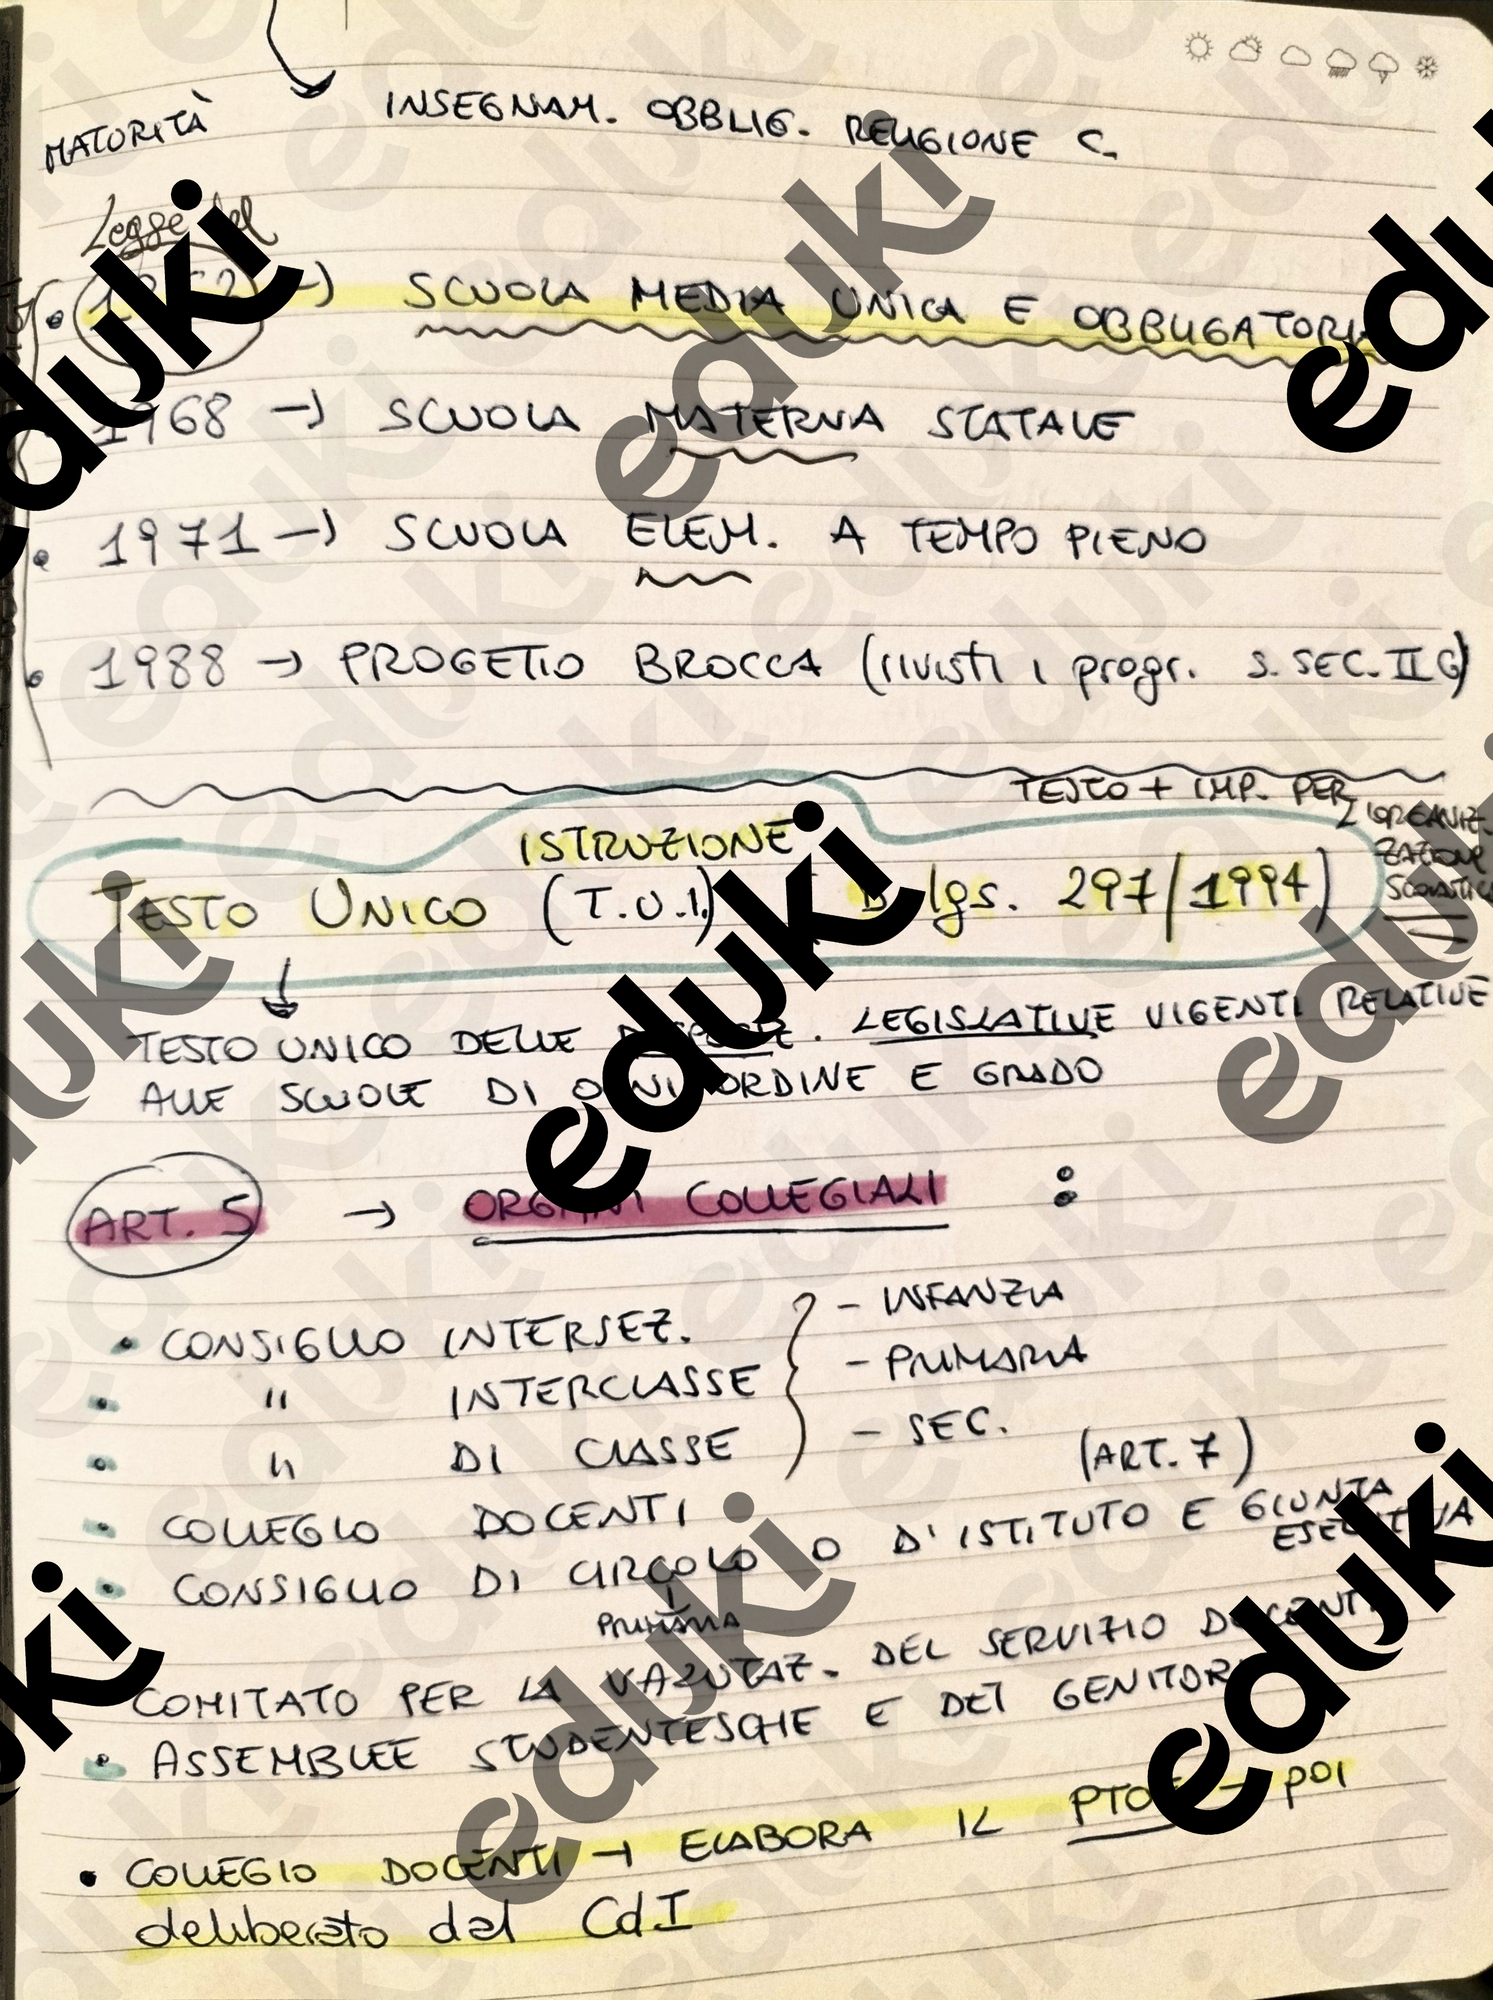 INSEGNAM. OBBLIG. RELIGIONE C.
MATORITÀ
Legge del
1962 -> SCUOLA MEDIA UNICA E OBBLIGATORIA
1968 -> SCUOLA MATERNA STATALE
• 1971 -> SCUOLA ELEM. A TEMPO PIENO
• 1988 -> PROGETTO BROCCA (rivisti i progr. S. SEC. II G)
TESTO + IMP. PER
L'ORGANIZ-
ZAZIONE
SCOLASTICA
ISTRUZIONE
TESTO UNICO (T.U.I.) D. lgs. 297/1994)
TESTO UNICO DELLE . LEGISLATIVE VIGENTI RELATIVE
ALLE SCUOLE DI OGNI ORDINE E GRADO
ART. 5 -> ORGANI COLLEGIALI :
• CONSIGLIO INTERSEZ. - INFANZIA
• " INTERCLASSE - PRIMARIA
• " DI CLASSE - SEC.
(ART. 7)
• COLLEGIO DOCENTI
• CONSIGLIO DI CIRCOLO O D'ISTITUTO E GIUNTA
ESECUTIVA
PRIMARIA
COMITATO PER LA VALUTAZ. DEL SERVIZIO DOCENTI
• ASSEMBLEE STUDENTESCHE E DEI GENITORI
• COLLEGIO DOCENTI -> ELABORA IL PTOF - POI
deliberato dal CdI
eduki
eduki
eduki
eduki
eduki
eduki
eduki
eduki
eduki
eduki